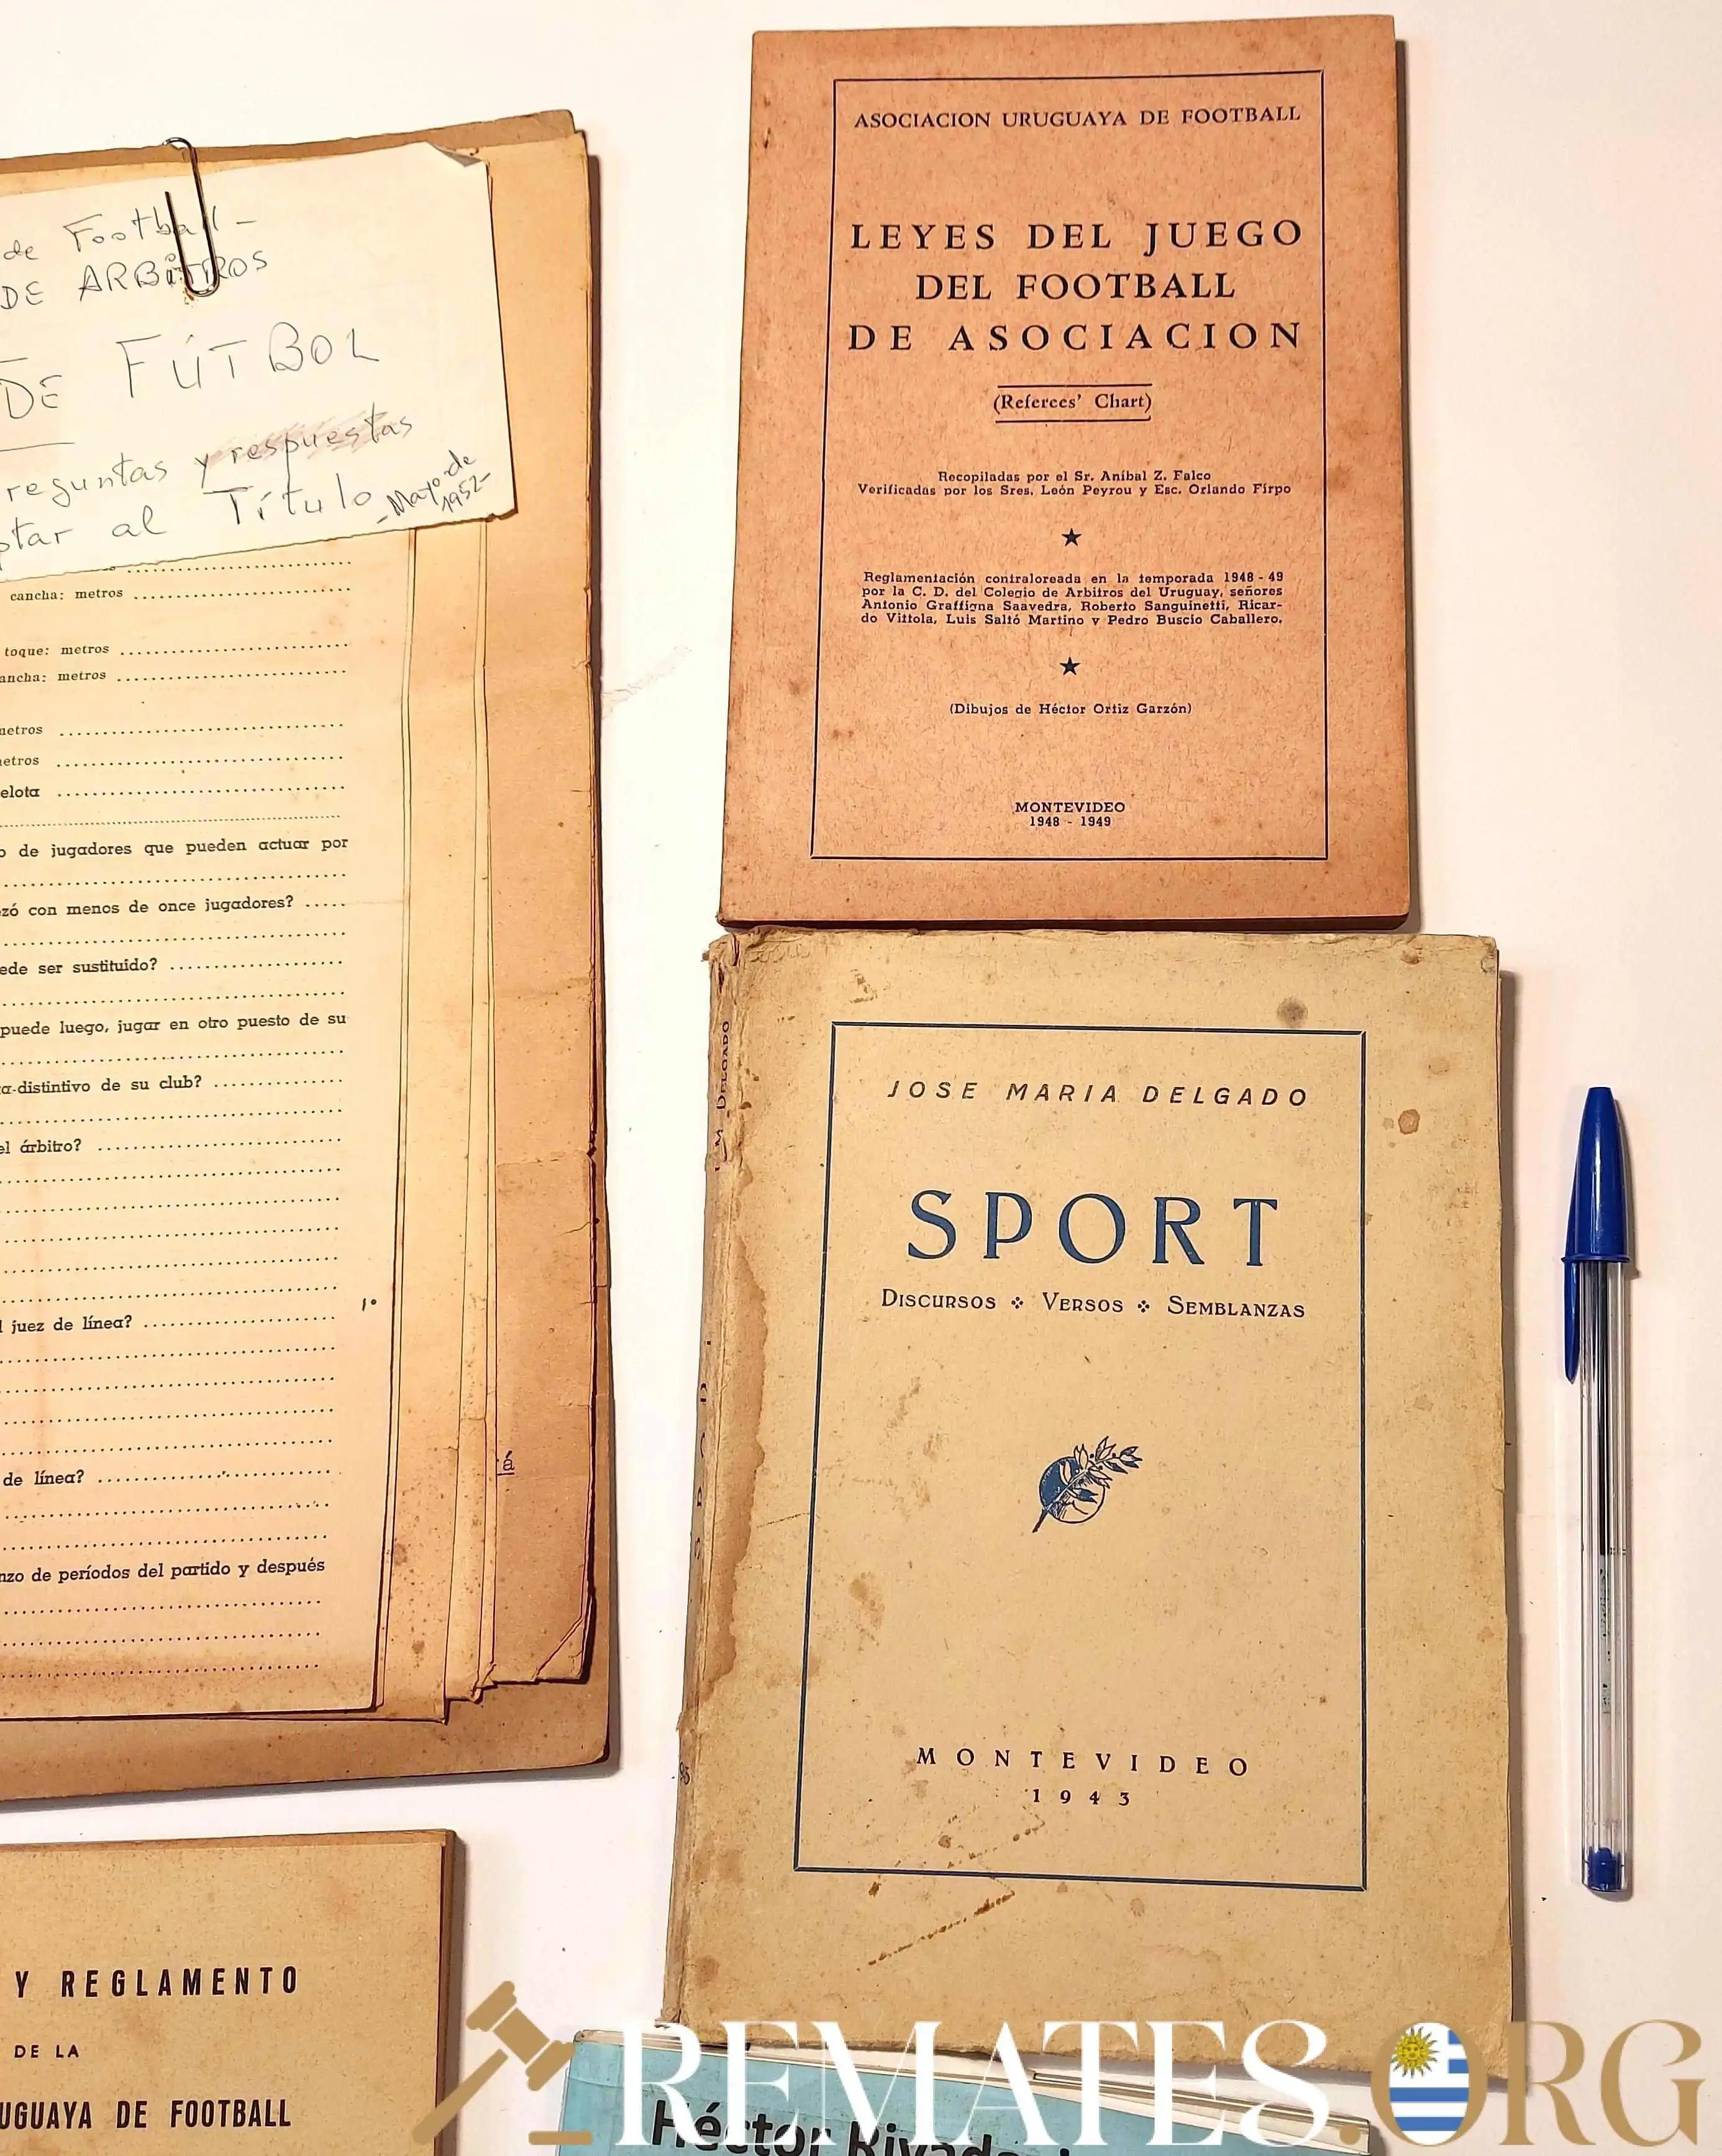 de Football -
DE ARBITROS
DE FÚTBOL
y respuestas
al Título - Mayo de
1952 -
cancha: metros
toque: metros
metros
de jugadores que pueden actuar por
con menos de once jugadores?
ser sustituído?
puede luego, jugar en otro puesto de su
distintivo de su club?
el árbitro?
1º
juez de línea?
á
de línea?
de períodos del partido y después
Y REGLAMENTO
DE LA
DE FOOTBALL
ASOCIACION URUGUAYA DE FOOTBALL
LEYES DEL JUEGO
DEL FOOTBALL
DE ASOCIACION
(Referees' Chart)
Recopiladas por el Sr. Aníbal Z. Falco
Verificadas por los Sres. León Peyrou y Esc. Orlando Firpo
Reglamentación contraloreada en la temporada 1948 - 49
por la C. D. del Colegio de Arbitros del Uruguay, señores
Antonio Graffigna Saavedra, Roberto Sanguinetti, Ricar-
do Vittola, Luis Saltó Martino y Pedro Buscio Caballero.
(Dibujos de Héctor Ortiz Garzón)
MONTEVIDEO
1948 - 1949
J. M. DELGADO
JOSE MARIA DELGADO
SPORT
DISCURSOS VERSOS SEMBLANZAS
MONTEVIDEO
1943
Héctor
REMATES.ORG